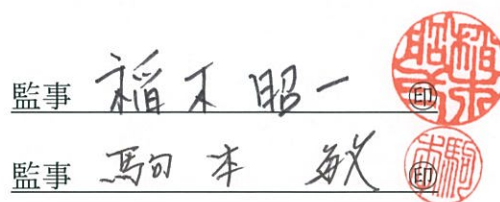 監事 稲木昭一 ㊞
監事 駒本 敏 ㊞